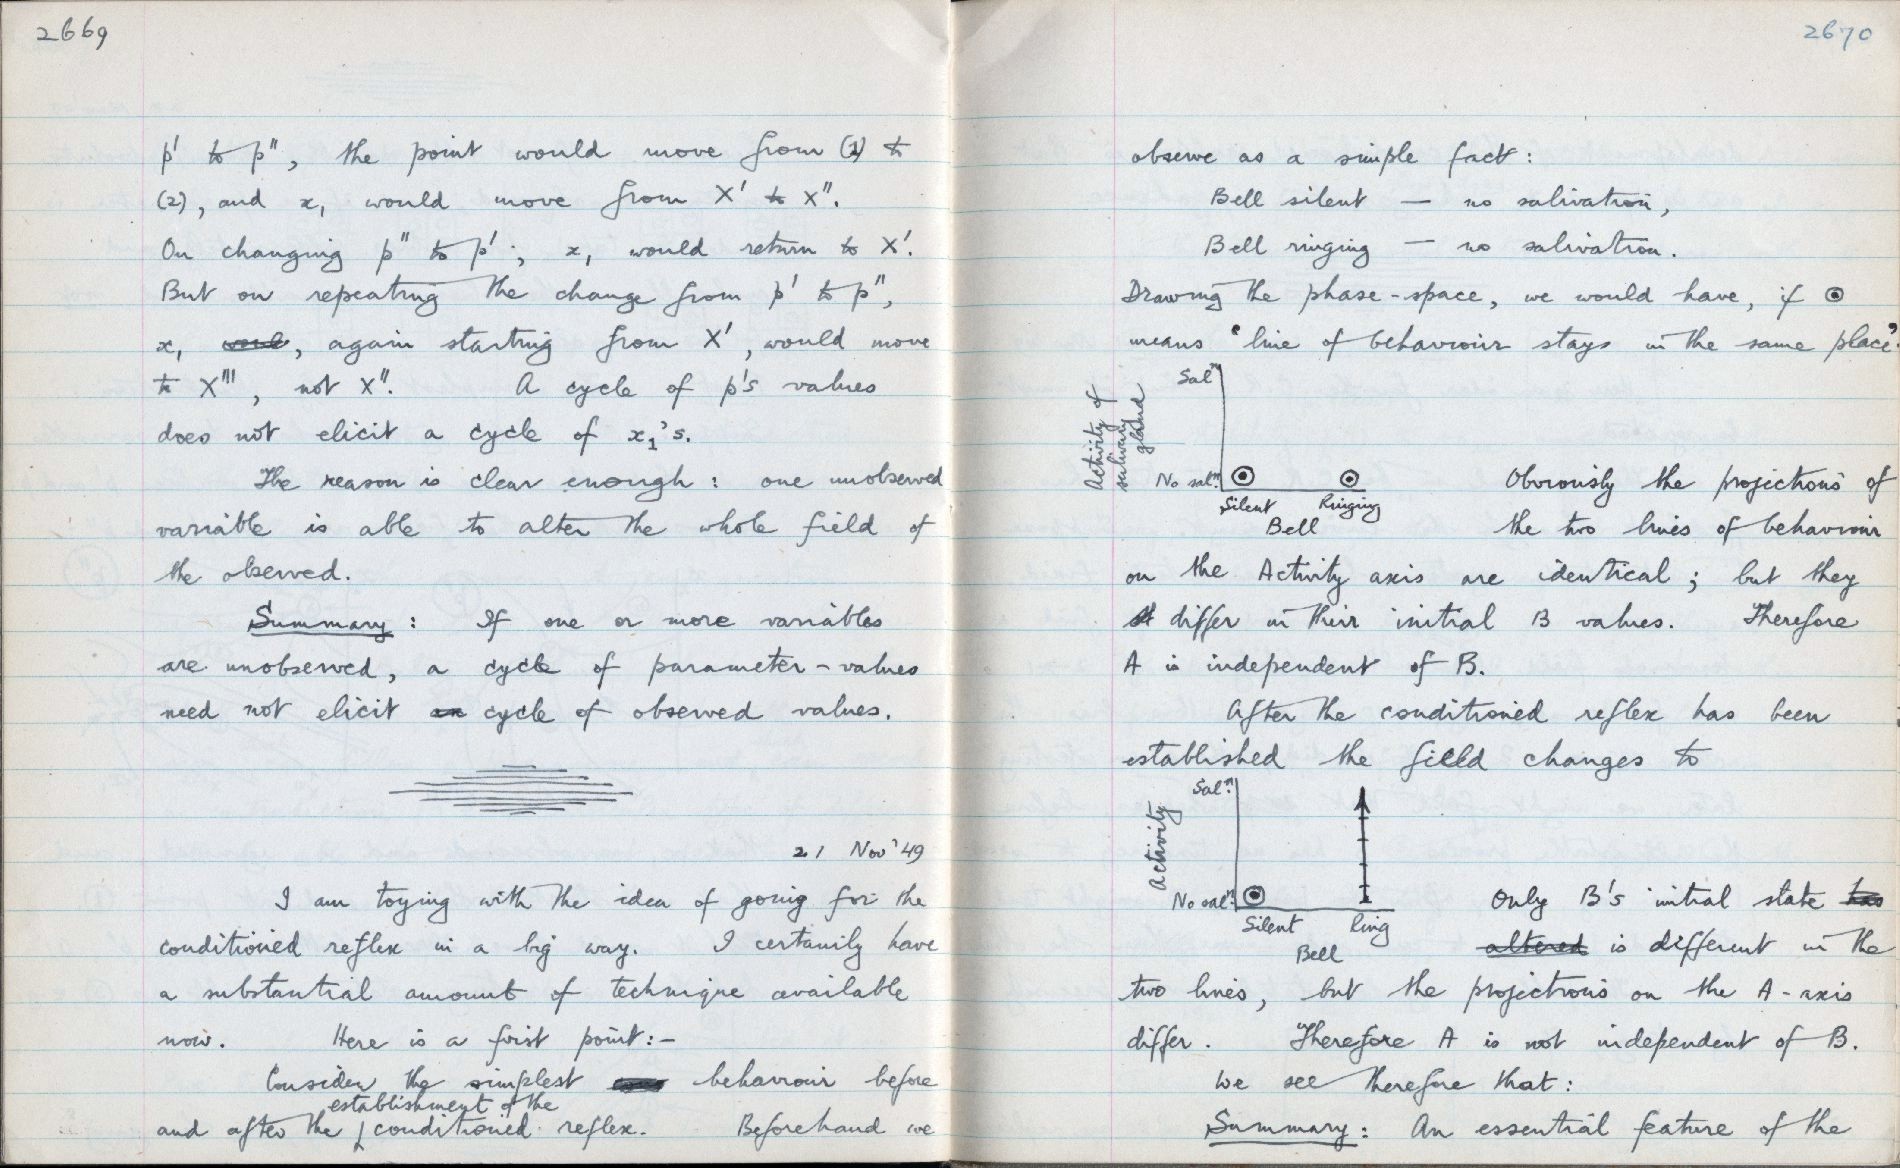 2669
p' to p", the point would move from (1) to
(2), and x₁ would move from X' to X".
On changing p" to p'; x₁ would return to X'.
But on repeating the change from p' to p",
x₁ , again starting from X', would move
to X''', not X". A cycle of p's values
does not elicit a cycle of x₁'s.
The reason is clear enough: one unobserved
variable is able to alter the whole field of
the obserwed.
Summary: If one or more variables
are unobserved, a cycle of parameter-values
need not elicit cycle of observed values.
21 Nov '49
I am toying with the idea of going for the
conditioned reflex in a big way. I certainly have
a substantial amount of technique available
now. Here is a first point:-
Consider the simplest behaviour before
establishment of the
and after the conditioned reflex. Beforehand we
2670
observe as a simple fact:
Bell silent — no salivation,
Bell ringing — no salivation.
Drawing the phase-space, we would have, if ⊙
means 'line of behaviour stays in the same place'.
Salⁿ
Activity of
salivary
gland
No salⁿ.
Silent Ringing
Bell
Obviously the projections of
the two lines of behaviour
on the Activity axis are identical; but they
differ in their initial B values. Therefore
A is independent of B.
After the conditioned reflex has been
established the field changes to
Salⁿ.
Activity
No salⁿ.
Silent Ring
Bell
Only B's initial state has
altered is different in the
two lines, but the projections on the A-axis
differ. Therefore A is not independent of B.
We see therefore that:
Summary: An essential feature of the